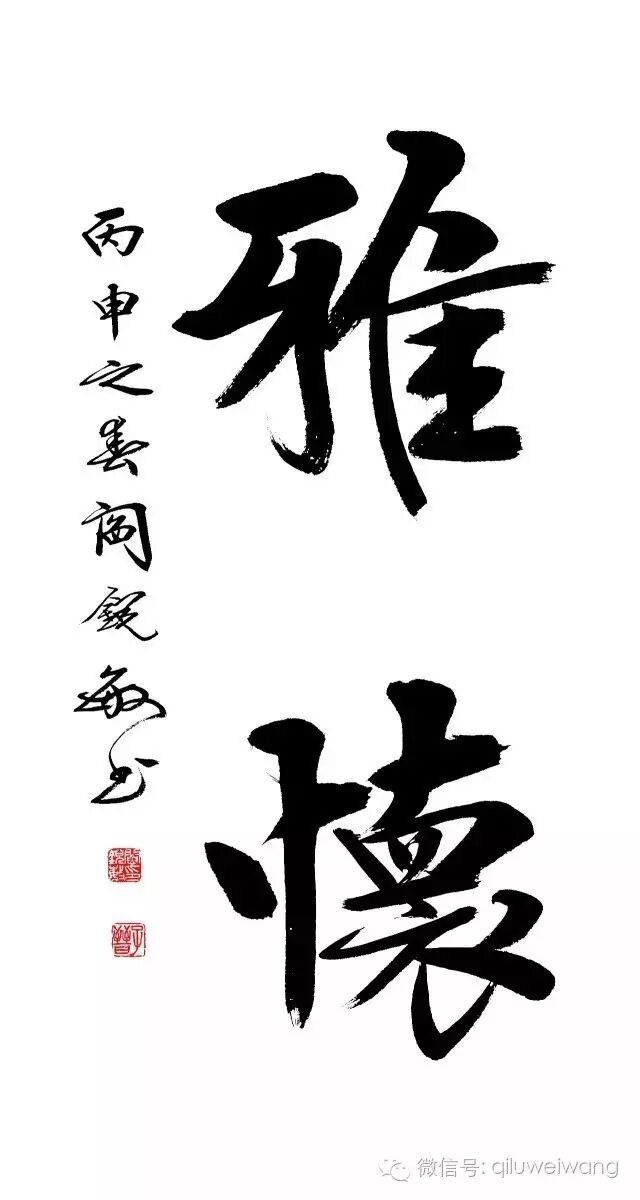 雅懷
丙申之春阎锐敏书
微信号: qiluweiwang